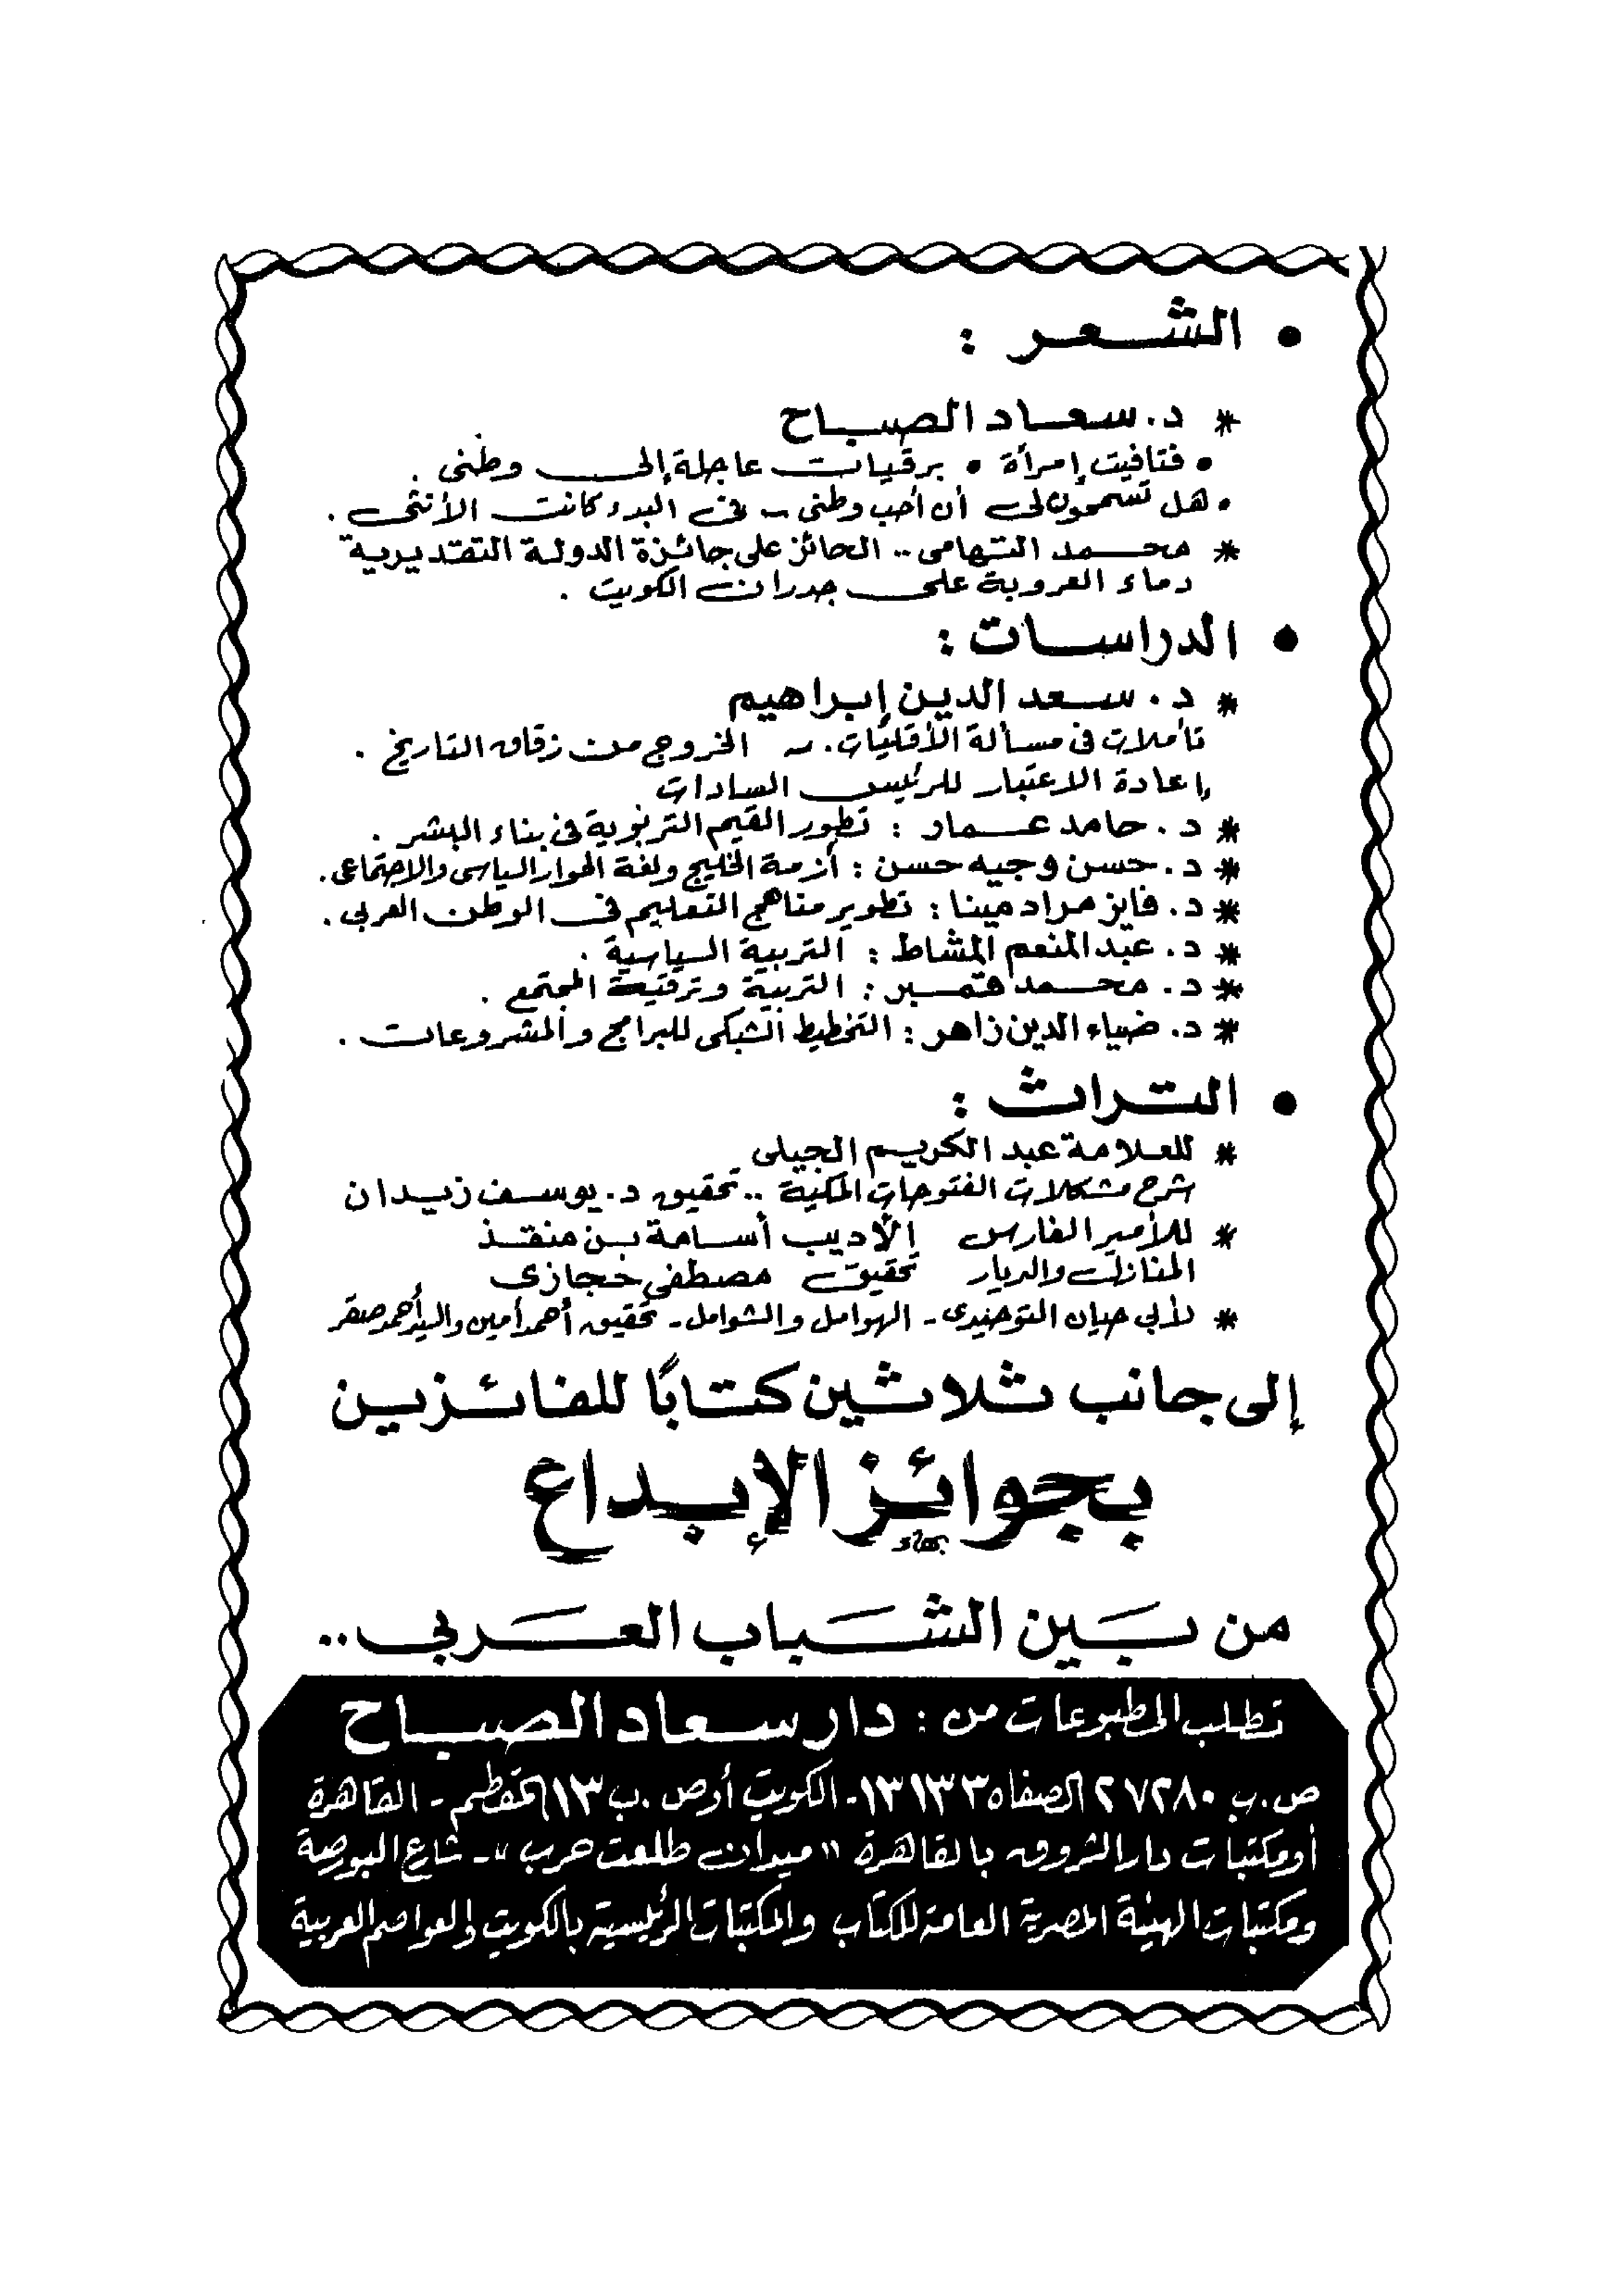 • الشعر :
* د. سعاد الصباح
• فتافيت إمرأة • برقيات عاجلة إلى وطنى .
• هل تسمحون لى أن أحب وطنى ـ فى البدء كانت الأنثى .
* محمد التهامى .. الحائز على جائزة الدولة التقديرية
دماء العروبة على جدران الكويت .
• الدراسات :
* د. سعد الدين إبراهيم
تأملات فى مسألة الأقليات . ـ الخروج من زقاق التاريخ .
إعادة الاعتبار للرئيس السادات
* د. حامد عمار : تطور القيم التربوية فى بناء البشر .
* د. حسن وجيه حسن : أزمة الخليج ولغة الحوار السياسى والاجتماعى .
* د. فايز مراد مينا : تطوير مناهج التعليم فى الوطن العربى .
* د. عبد المنعم المشاط : التربية السياسية .
* د. محمد قمبر : التربية وترقية المجتمع .
* د. ضياء الدين زاهر : التخطيط الشبكى للبرامج والمشروعات .
• التراث :
* للعلامة عبد الكريم الجيلى
شرح مشكلات الفتوحات المكية .. تحقيق د. يوسف زيدان
* للأمير الفارس الأديب أسامة بن منقذ
المنازل والديار تحقيق مصطفى حجازى
* لأبي حيان التوحيدى - الهوامل والشوامل - تحقيق أحمد أمين والسيد أحمد صقر
إلى جانب ثلاثين كتابًا للفائزين
بجوائز الإبداع
من بين الشباب العربي ..
تطلب المطبوعات من : دار سعاد الصباح
ص.ب ٢٧٢٨٠ الصفاه ١٣١٣٣ - الكويت أو ص.ب ١٣ المقطم - القاهرة
أو مكتبات دار الشروق بالقاهرة "ميدان طلعت حرب" - شارع البورصة
ومكتبات الهيئة المصرية العامة للكتاب والمكتبات الرئيسية بالكويت والعواصم العربية